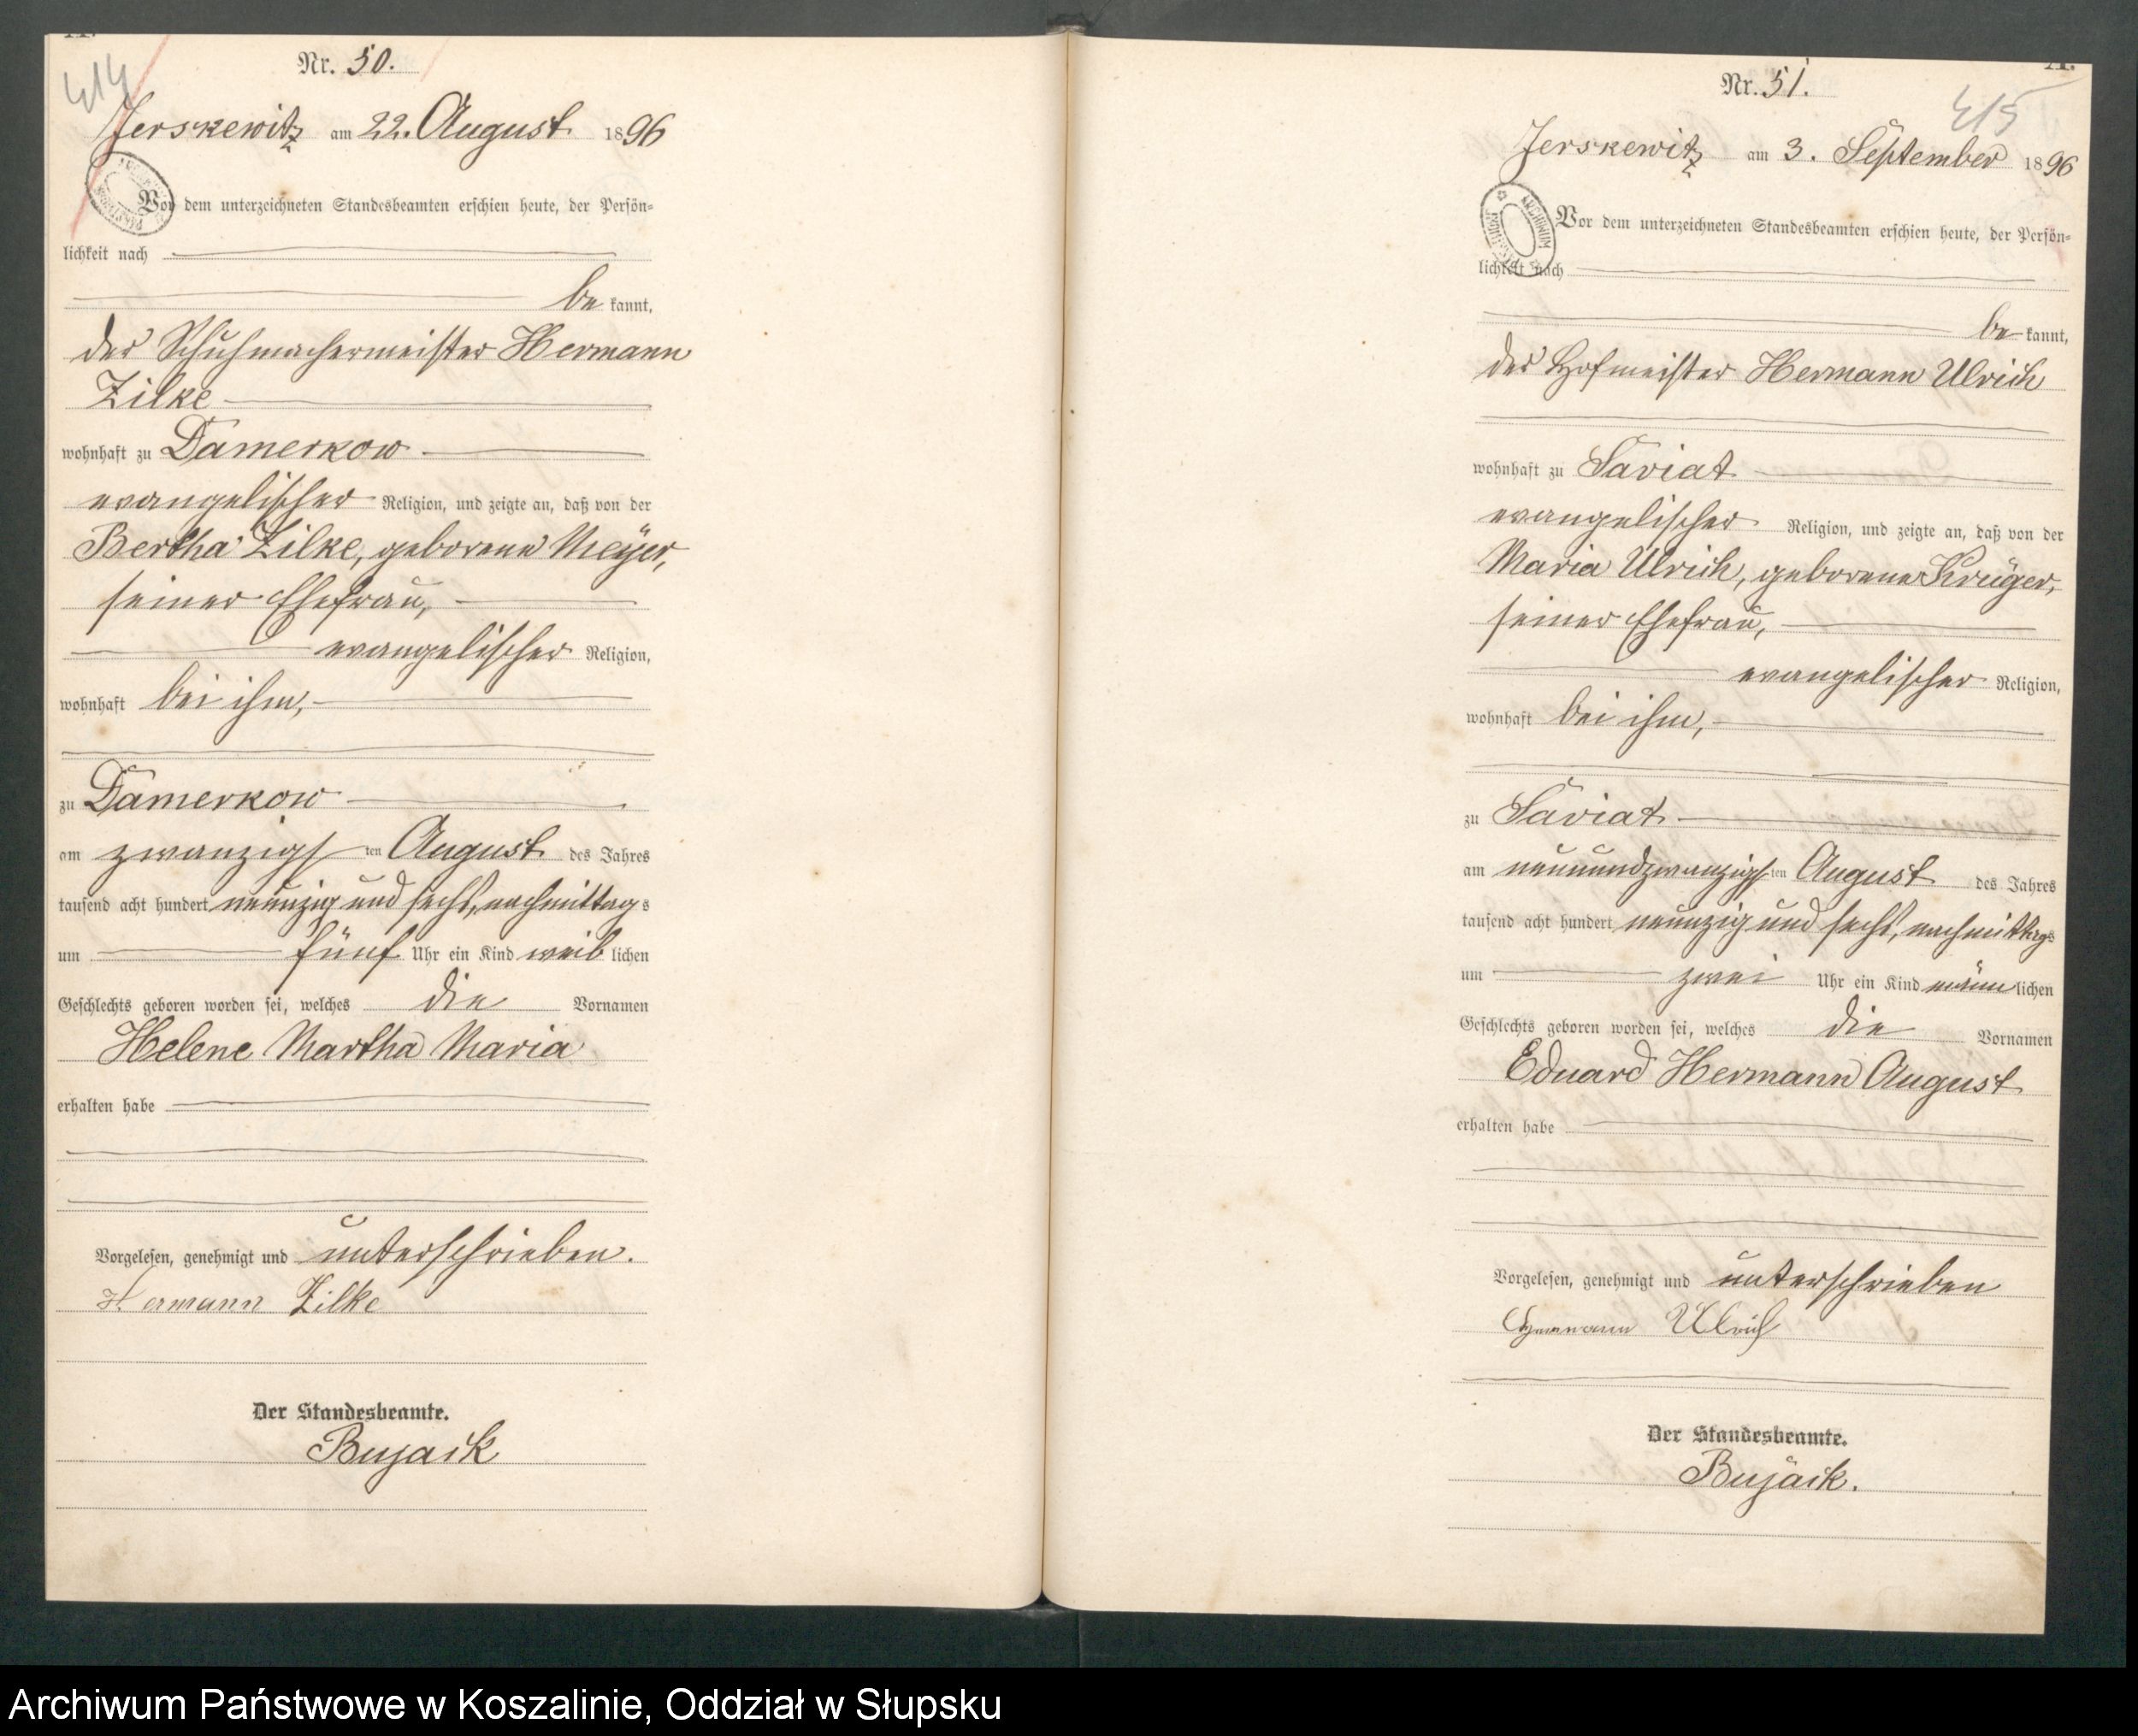 Nr. 50.
414
Jerskewitz am 22. August 1896
Vor dem unterzeichneten Standesbeamten erschien heute, der Persön=
lichkeit nach
be kannt,
der Schuhmachermeister Hermann
Zilke
wohnhaft zu Damerkow
evangelischer Religion, und zeigte an, daß von der
Bertha Zilke, geborene Meyer,
seiner Ehefrau,
evangelischer Religion,
wohnhaft bei ihm,
zu Damerkow
am zwanzigsten August des Jahres
tausend acht hundert neunzig und sechs, nachmittags
um fünf Uhr ein Kind weiblichen
Geschlechts geboren worden sei, welches die Vornamen
Helene Martha Maria
erhalten habe
Vorgelesen, genehmigt und unterschrieben.
Hermann Zilke
Der Standesbeamte.
Bujack
A.
Nr. 51.
415
Jerskewitz am 3. September 1896
ARCHIWUM
Vor dem unterzeichneten Standesbeamten erschien heute, der Persön=
lichkeit nach
be kannt,
der Hofmeister Hermann Ulrich
wohnhaft zu Saviat
evangelischer Religion, und zeigte an, daß von der
Maria Ulrich, geborene Krüger,
seiner Ehefrau,
evangelischer Religion,
wohnhaft bei ihm,
zu Saviat
am neunundzwanzigsten August des Jahres
tausend acht hundert neunzig und sechs, nachmittags
um zwei Uhr ein Kind männlichen
Geschlechts geboren worden sei, welches die Vornamen
Eduard Hermann August
erhalten habe
Vorgelesen, genehmigt und unterschrieben
Hermann Ulrich
Der Standesbeamte.
Bujack.
Archiwum Państwowe w Koszalinie, Oddział w Słupsku